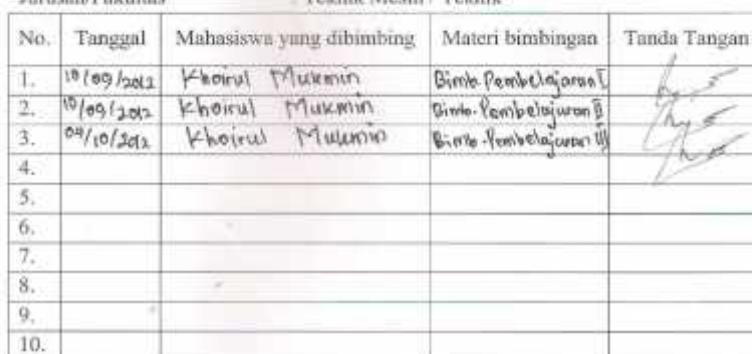 Jurusan/Fakultas : Teknik Mesin / Teknik
No. Tanggal Mahasiswa yang dibimbing Materi bimbingan Tanda Tangan
1. 18/09/2012 Khoirul Mukmin Bimb. Pembelajaran I
2. 18/09/2012 Khoirul Mukmin Bimb. Pembelajaran II
3. 04/10/2012 Khoirul Mukmin Bimb. Pembelajaran III
4.
5.
6.
7.
8.
9.
10.